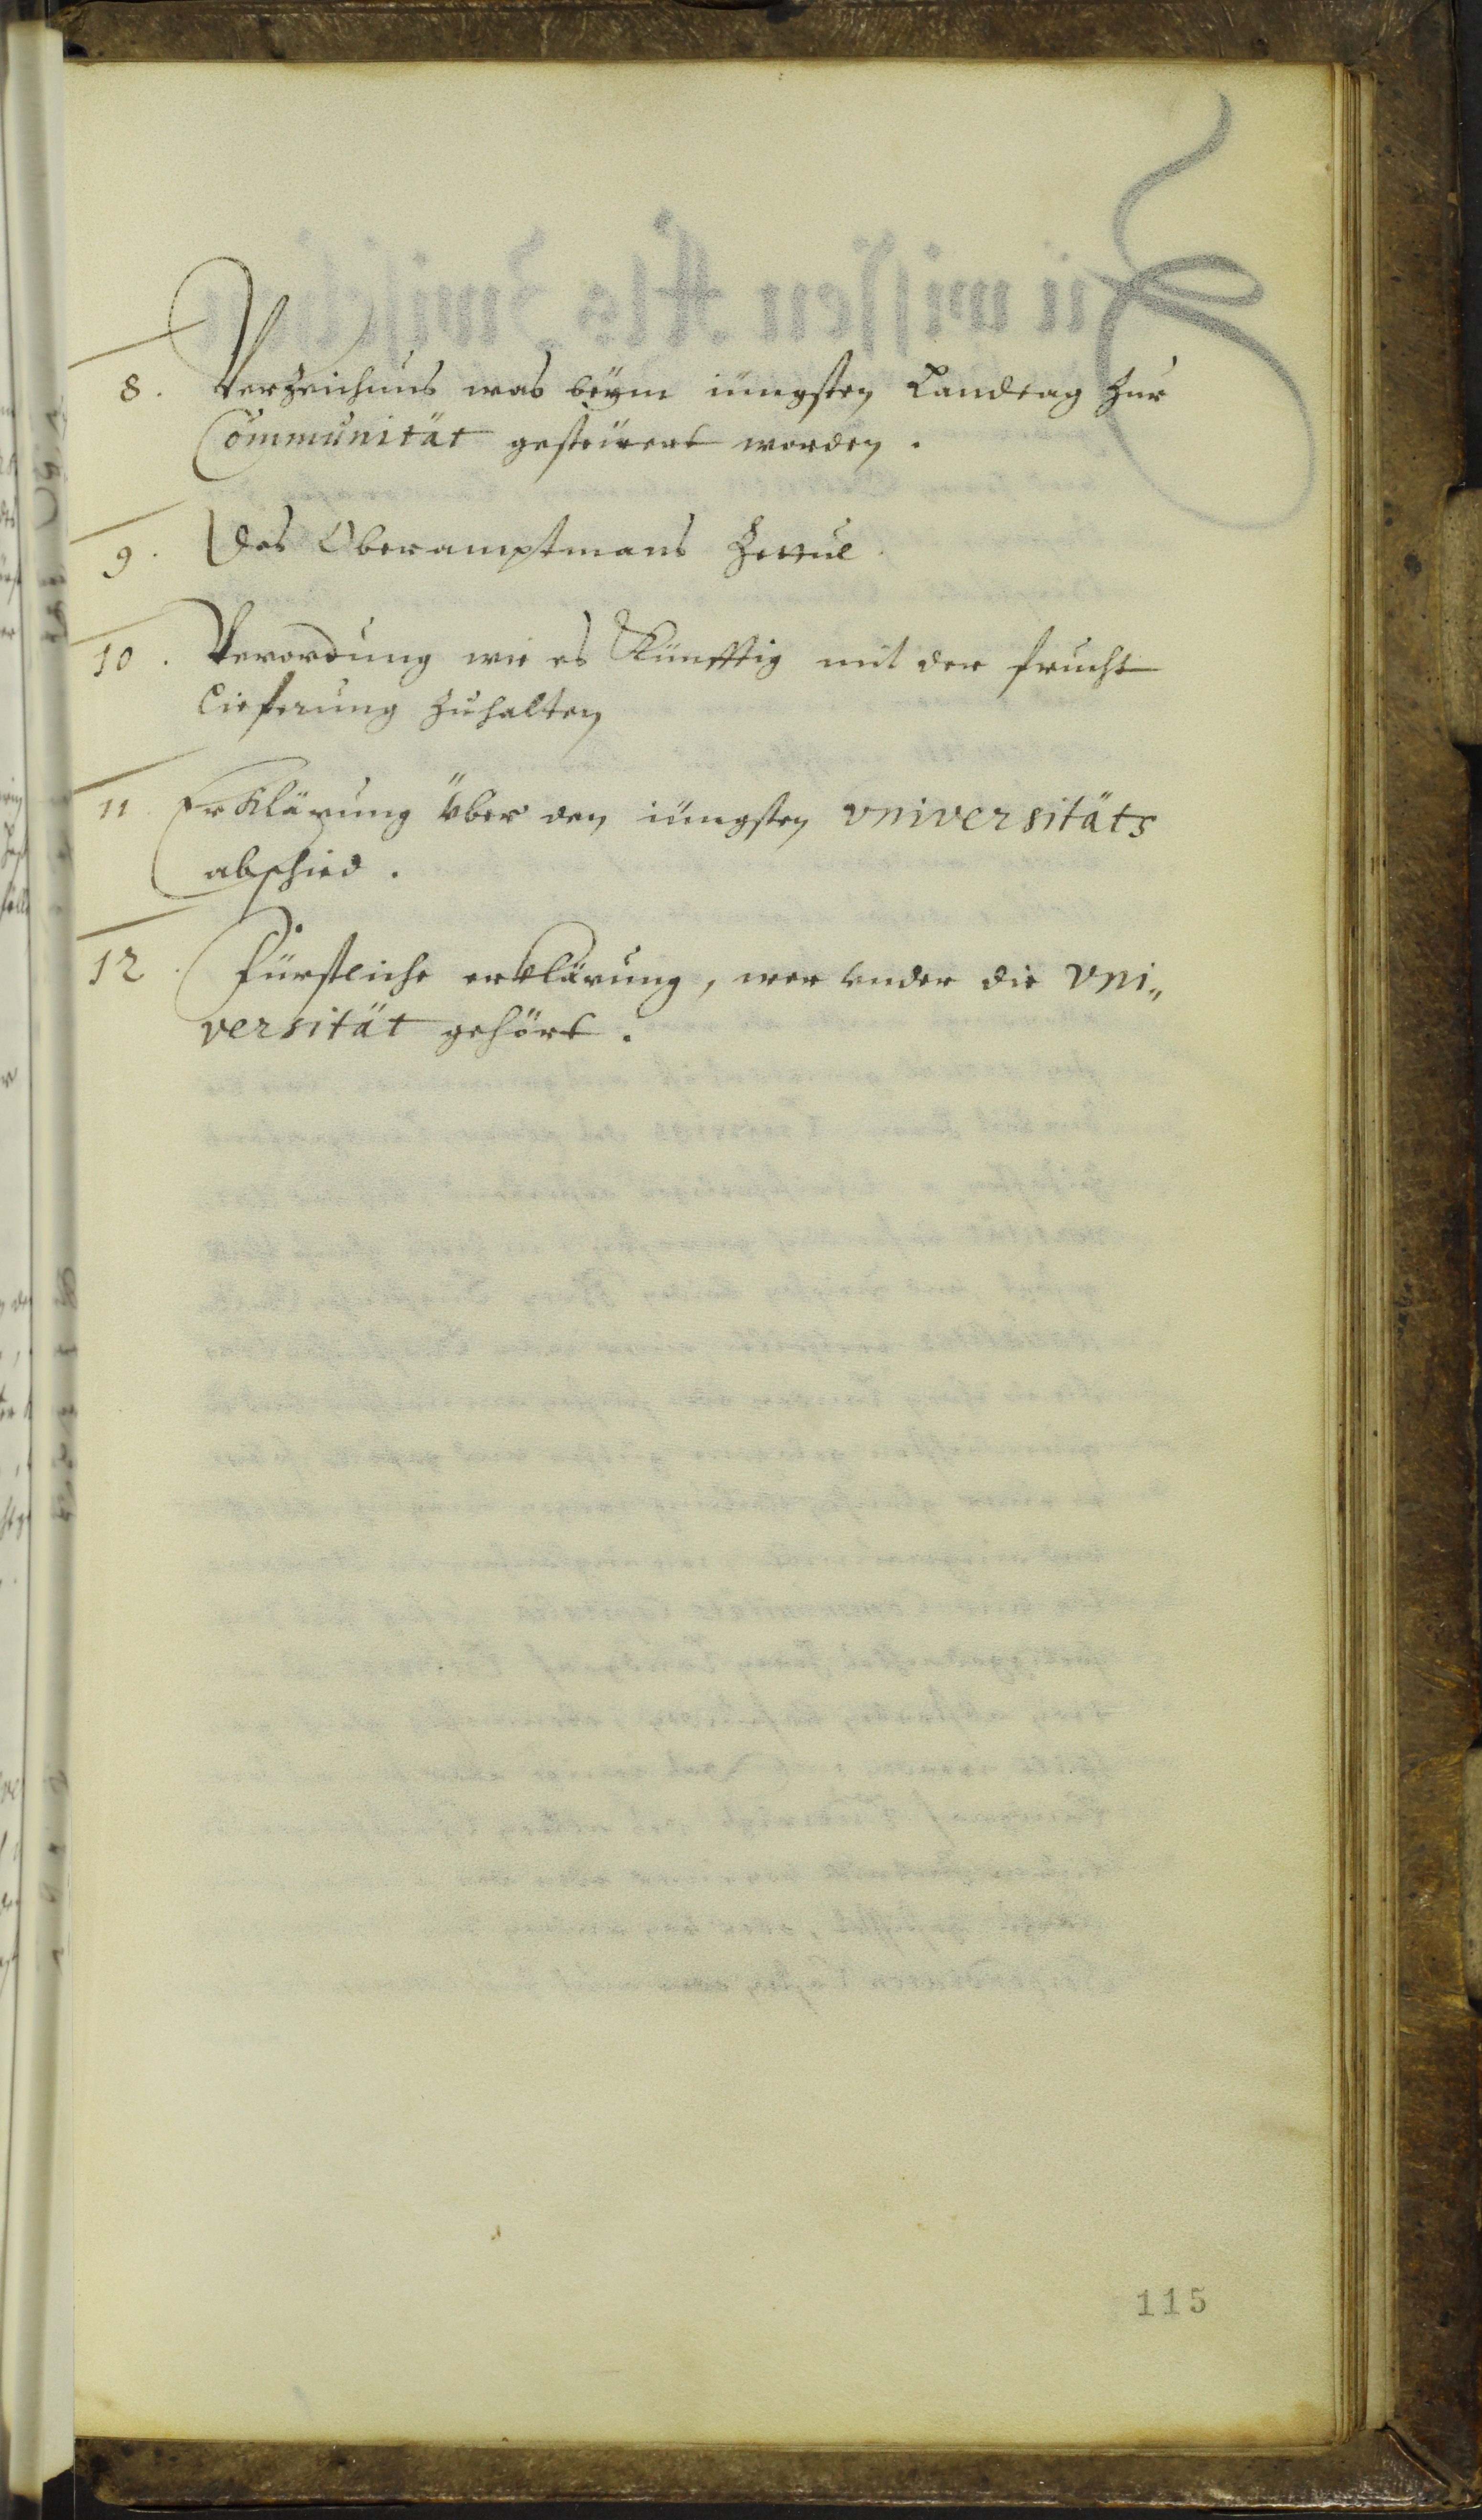 8. Verzeichnus was beÿm iüngsten Landtag zur
Communität gesteüert worden.
9. Des Oberamptmans Zettul.
10. Verordnung wie es Künfftig mit der frucht
lieferung zuhalten
11. Erklärung über den iüngsten vniversitäts
abschied.
12. Fürstliche erklärung, wer vnder die vni„
versität gehört.
115